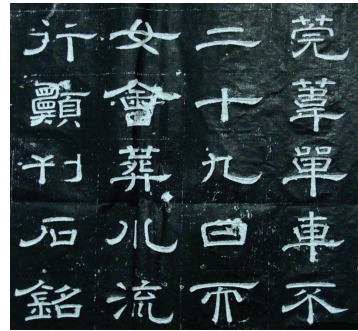 莞蕇單車不
二十九日而
女會葬小流
行顛刊石銘